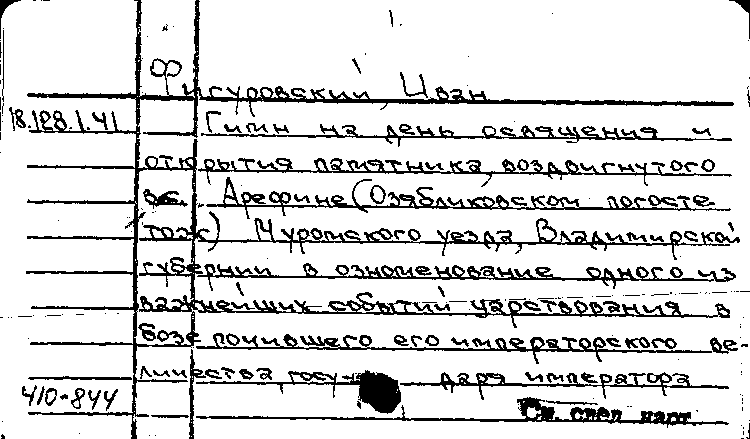 1.
Фигуровский, Иван
18.128.1.41 Гимн на день освящения и
открытия памятника, воздвигнутого
в с. Арефине (Озябликовском погосте
тож) Муромского уезда, Владимирской
губернии в ознаменование одного из
важнейших событий царствования в
бозе почившего его императорского ве-
личества, госу- даря императора
410-844
См. след. карт.